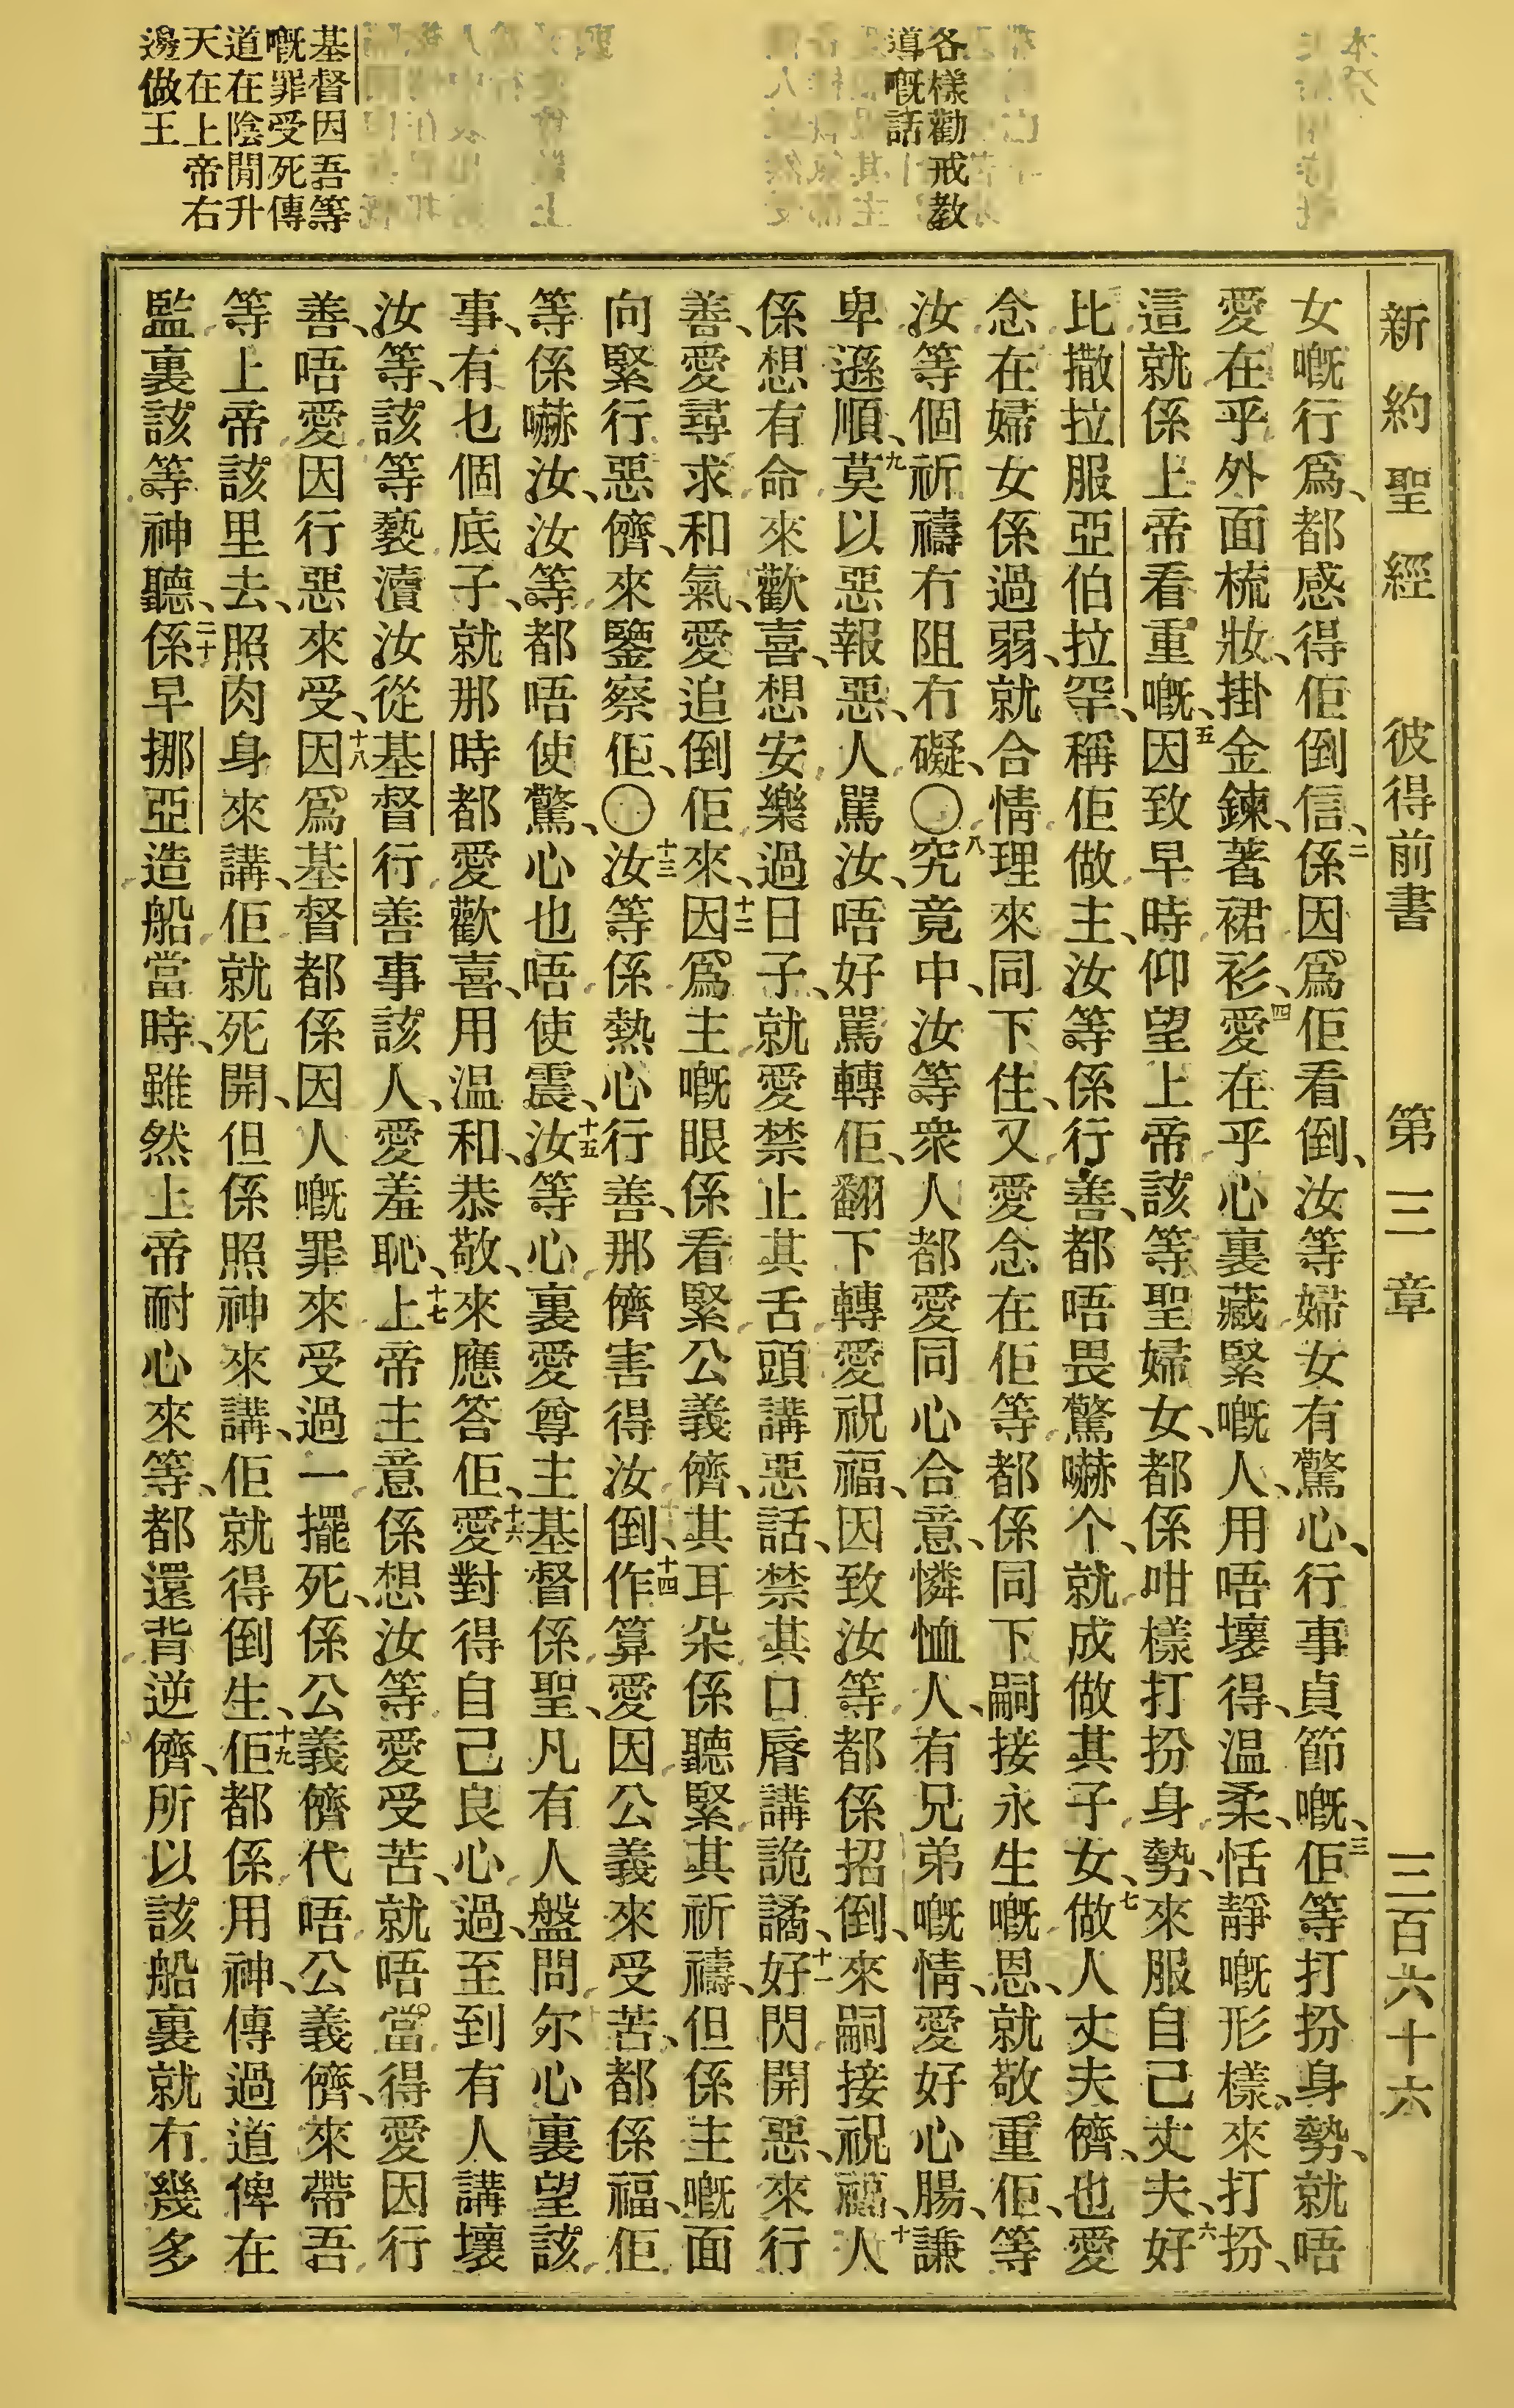 新約聖經 彼得前書 第三章 三百六十六
各樣勸戒教
導嘅話
基督因吾等
嘅罪受死傳
道在陰間升
天在上帝右
邊做王
女嘅行爲、都感得佢倒信、二係因爲佢看倒、汝等婦女有驚心、行事貞節嘅、三佢等打扮身勢、就唔
愛在乎外面梳妝、掛金鍊、著裙衫、四愛在乎心裏藏緊嘅人、用唔壞得、温柔、恬靜嘅形樣、來打扮、
這就係上帝看重嘅、五因致早時仰望上帝該等聖婦女、都係咁樣打扮身勢、來服自己丈夫、六好
比撒拉服亞伯拉罕、稱佢做主、汝等係行善、都唔畏驚嚇个、就成做其子女、七做人丈夫儕、也愛
念在婦女係過弱、就合情理來同下住、又愛念在佢等都係同下嗣接永生嘅恩、就敬重佢、等
汝等個祈禱冇阻冇礙、〇八究竟中、汝等衆人都愛同心合意、憐恤人、有兄弟嘅情、愛好心腸、謙
卑遜順、九莫以惡報惡、人駡汝、唔好駡轉佢、翻下轉愛祝福、因致汝等都係招倒、來嗣接祝福、十人
係想有命來歡喜、想安樂過日子、就愛禁止其舌頭講惡話、禁其口唇講詭譎、十一好閃開惡、來行
善、愛尋求和氣、愛追倒佢來、十二因爲主嘅眼係看緊公義儕、其耳朵係聽緊其祈禱、但係主嘅面
向緊行惡儕、來鑒察佢、〇十三汝等係熱心行善、那儕害得汝倒、十四作算愛因公義來受苦、都係福、佢
等係嚇汝、汝等都唔使驚、心也唔使震、十五汝等心裏愛尊主基督係聖、凡有人盤問尔心裏望該
事、有乜個底子、就那時都愛歡喜、用温和、恭敬、來應答佢、十六愛對得自己良心過、至到有人講壞
汝等、該等褻瀆汝從基督行善事該人、愛羞恥、十七上帝主意係想汝等愛受苦、就唔當得愛因行
善、唔愛因行惡來受、十八因爲基督都係因人嘅罪來受過一擺死、係公義儕代唔公義儕、來帶吾
等上帝該里去、照肉身來講、佢就死開、但係照神來講、佢就得倒生、十九佢都係用神、傳過道俾在
監裏該等神聽、二十係早挪亞造船當時、雖然上帝耐心來等、都還背逆儕、所以該船裏就冇幾多